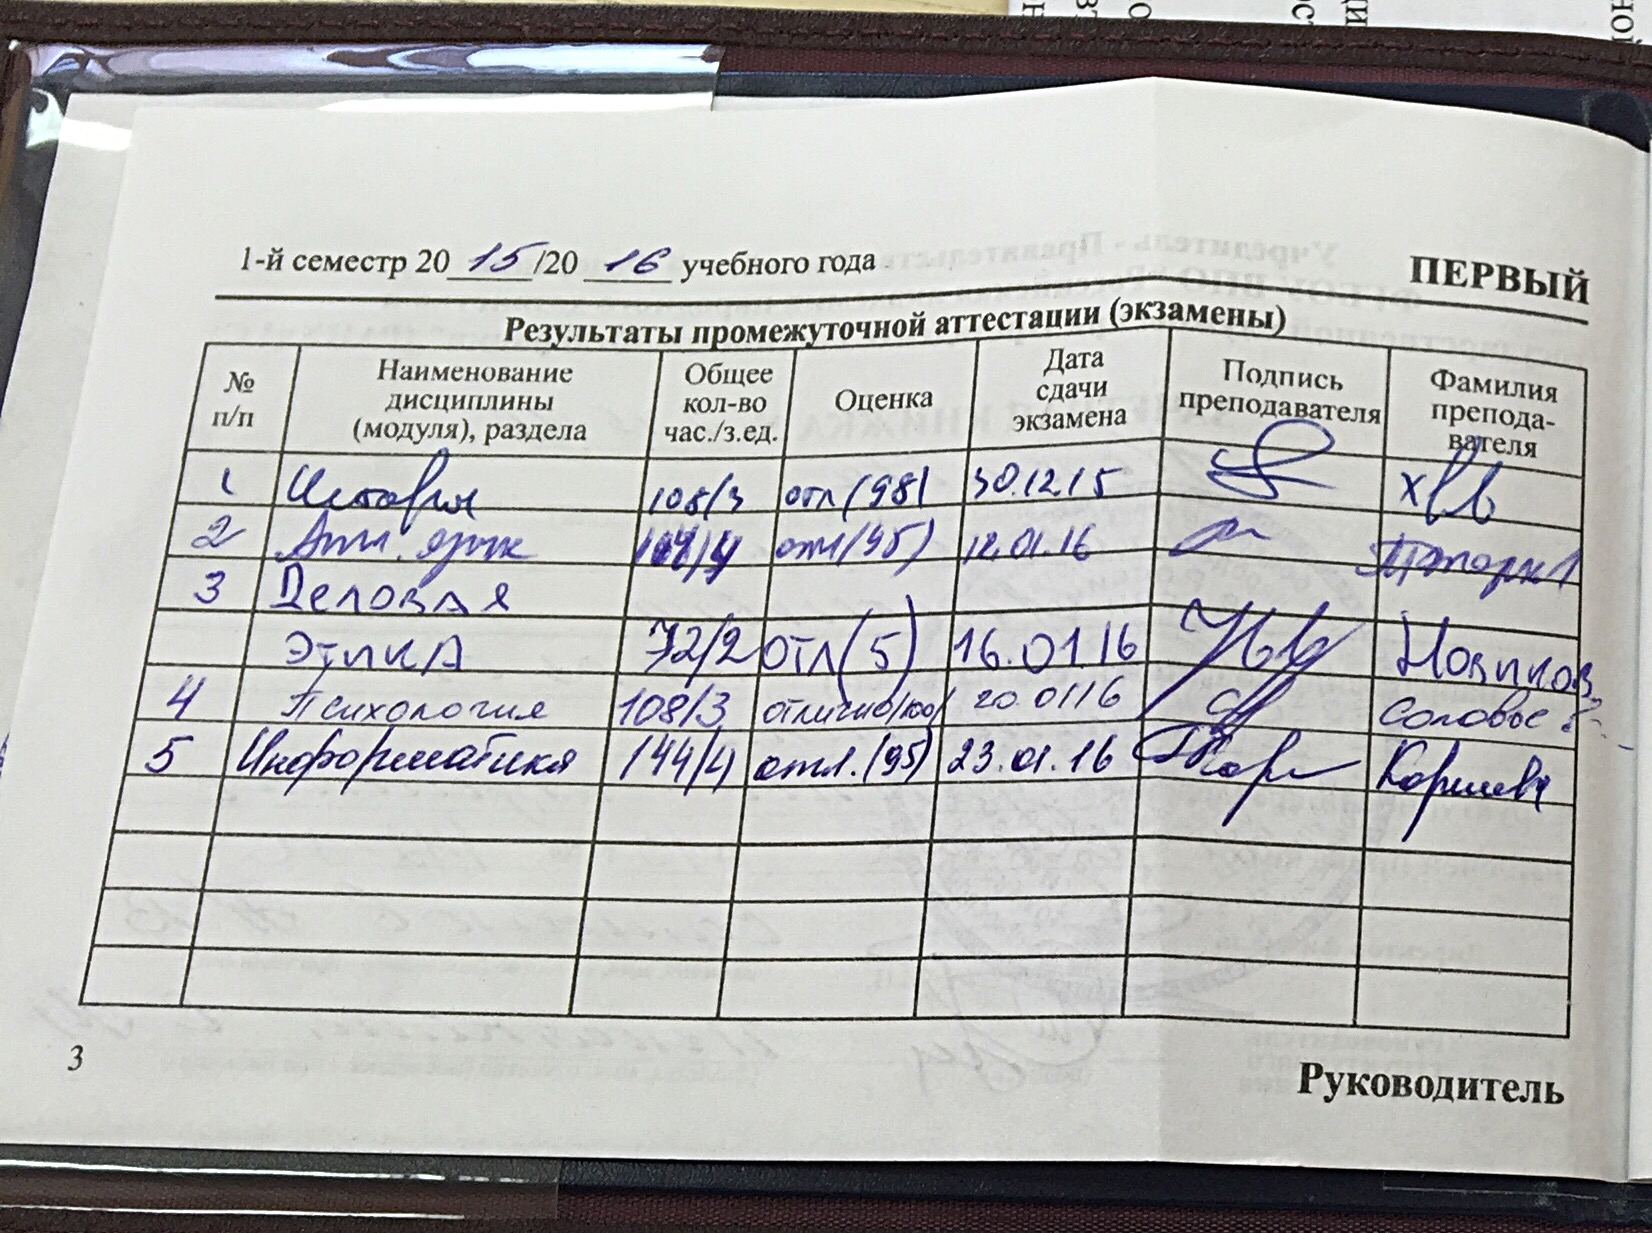 1-й семестр 20 15 /20 16 учебного года
ПЕРВЫЙ
Результаты промежуточной аттестации (экзамены)
№ п/п
Наименование дисциплины (модуля), раздела
Общее кол-во час./з.ед.
Оценка
Дата сдачи экзамена
Подпись преподавателя
Фамилия препода-вателя
1 История 108/3 отл (98) 30.12.15
2 Анг. язык 144/4 отл (95) 12.01.16
3 Деловая
этика 72/2 отл (5) 16.01.16 Новиков
4 Психология 108/3 отлично/100/ 20.01 16
5 Информатика 144/4 отл. (95) 23.01.16
3
Руководитель